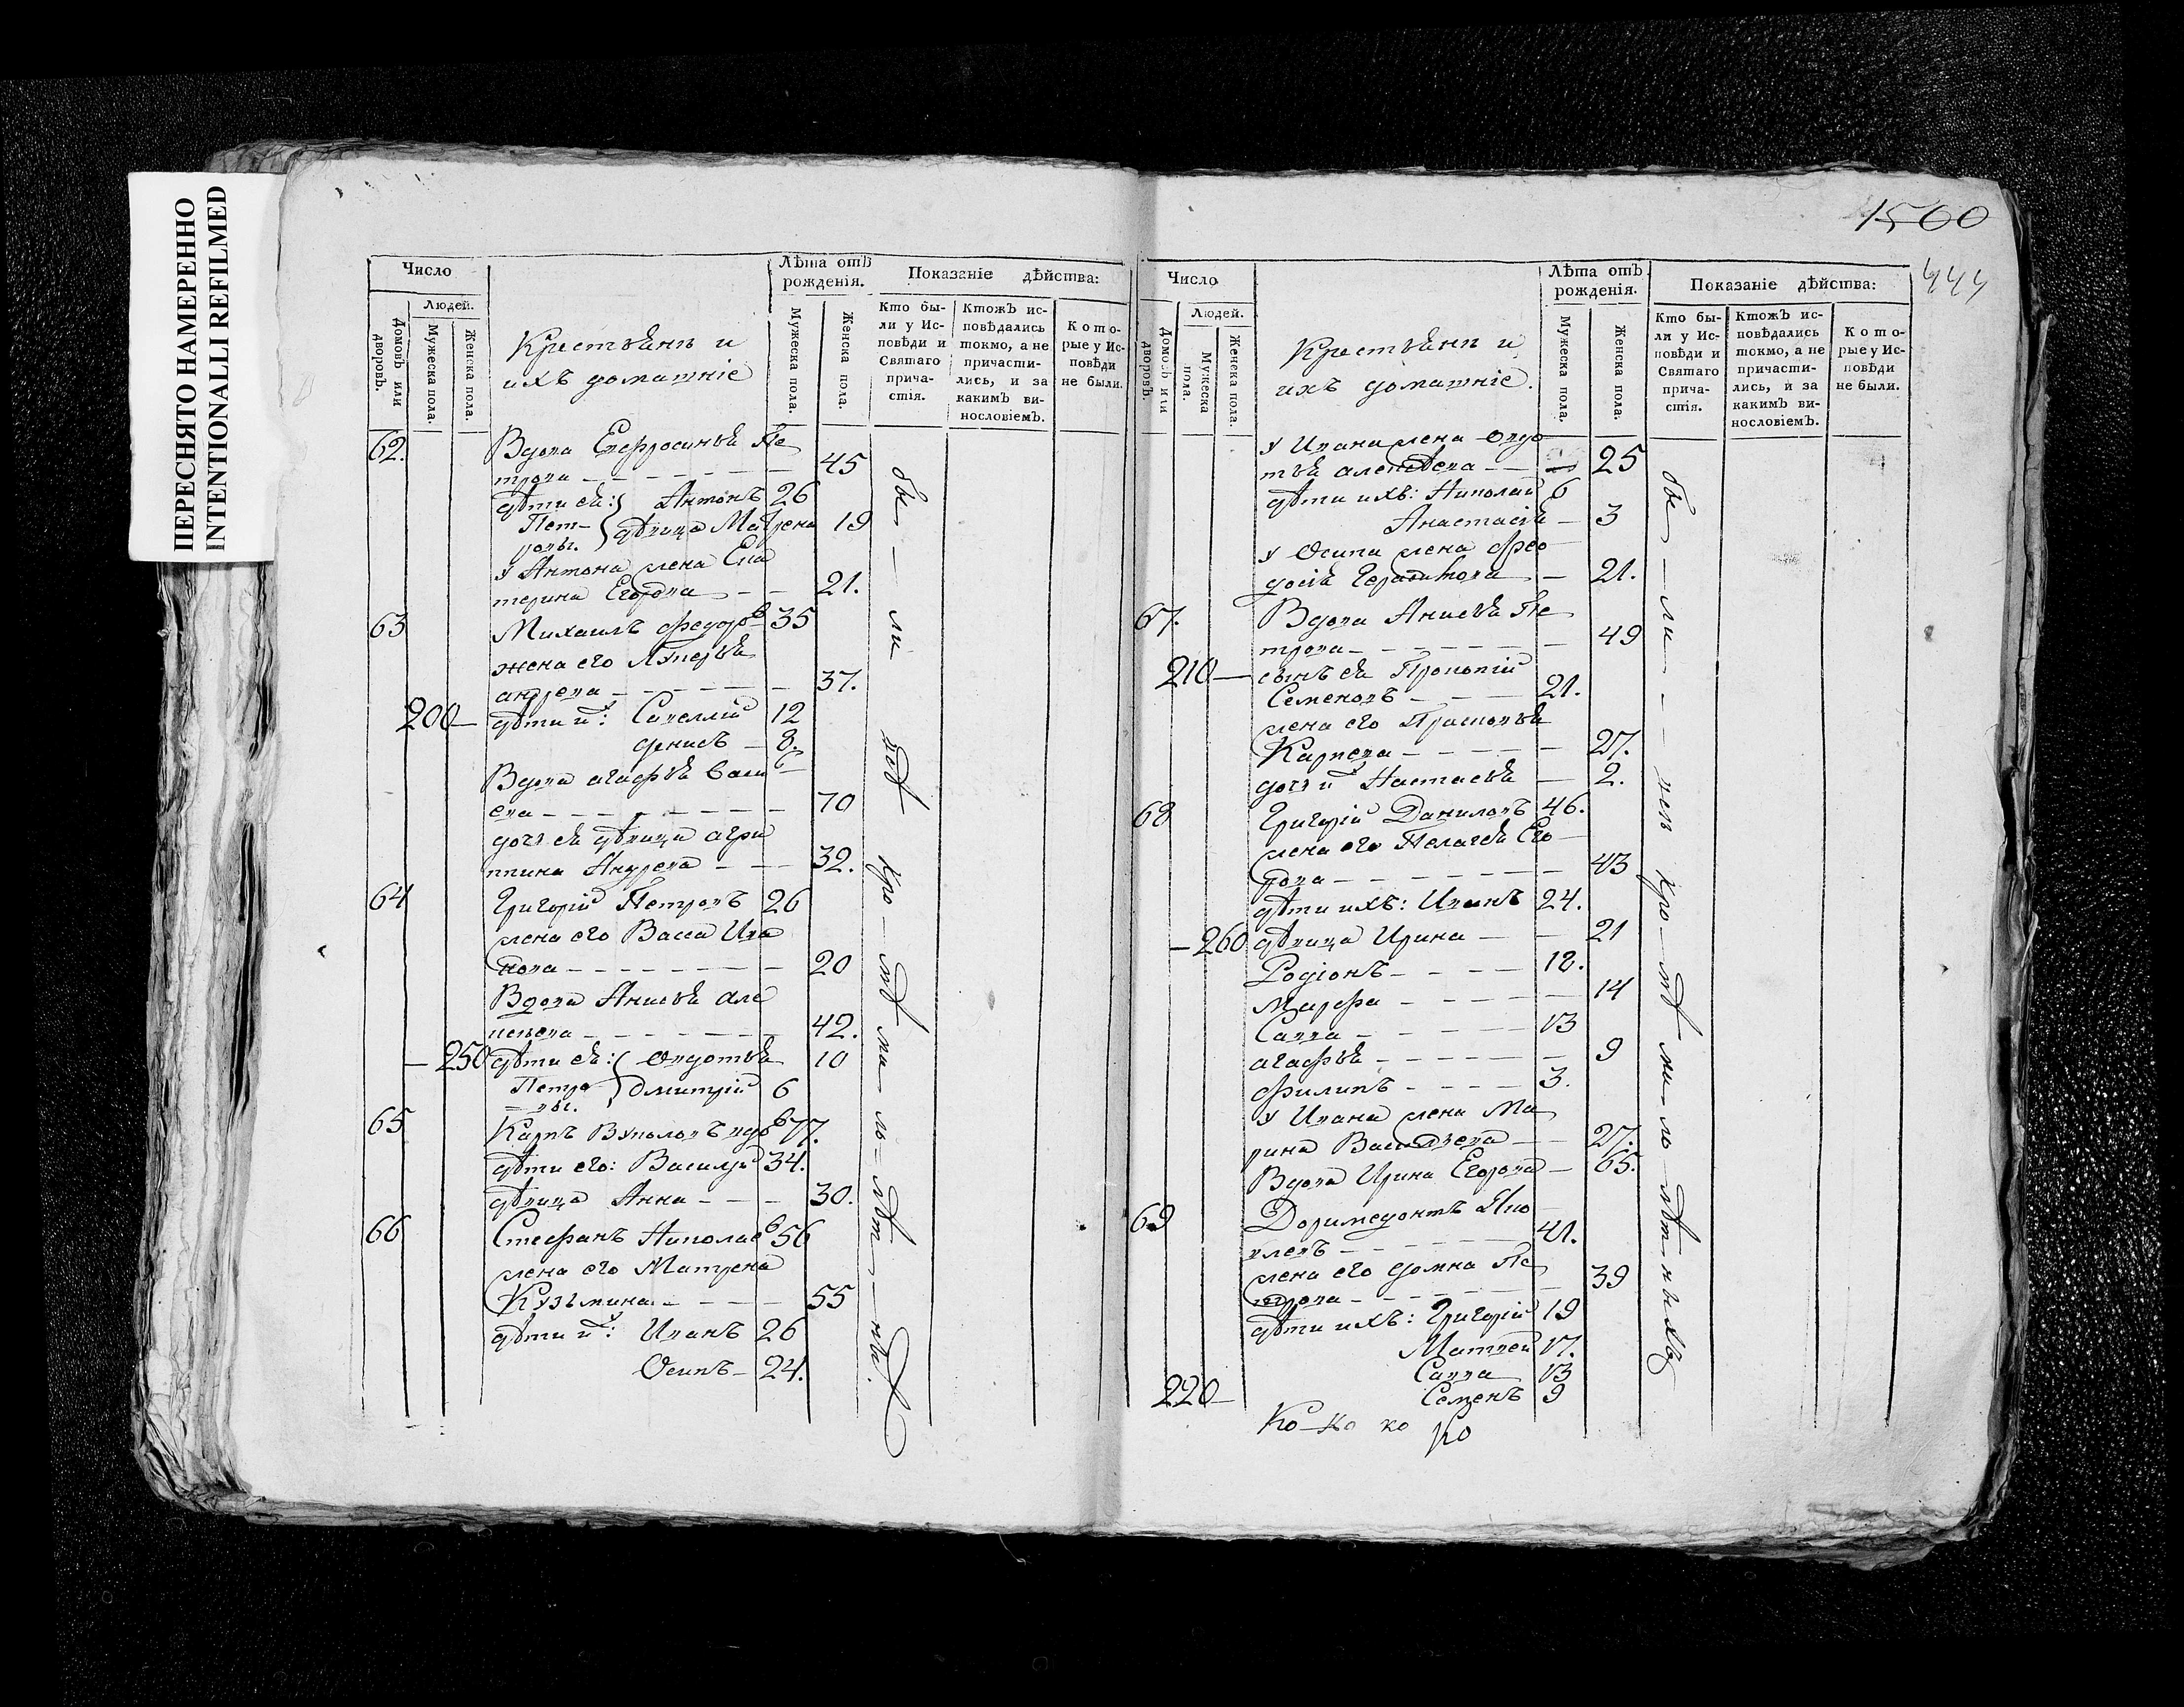 ПЕРЕСНЯТО НАМЕРЕННО
INTENTIONALLI REFILMED
1500
444
Число
Людей.
Домовъ или дворовъ.
Мужеска пола.
Женска пола.
Крестьянъ и
ихъ домашніе
Лѣта отъ рожденія.
Мужеска пола.
Женска пола.
Показаніе дѣйства:
Кто были у Исповѣди и Святаго причастія.
Ктожъ исповѣдались токмо, а не причастились, и за какимъ винословіемъ.
Которые у Исповѣди не были.
62. Вдова Евфросинья Пе
трова 45
дѣти ея: Антонъ 26
Пет- ровы. дѣвица Матрена 19
У Антона жена Ека
терина Егорова 21.
63 Михаилъ Федоровъ 35
жена его Лукерья
андреева 37.
200 дѣти ихъ: Савелій 12
Денисъ 8.
Вдова агафья Васи
ева 70
дочь ея дѣвица агри
ппина Андреева 32.
64 Григорій Петровъ 26
жена его Васса Ива
нова 20
Вдова Анисья але
ксеева 42.
250 дѣти ея: Овдотья 10
Петро вы. Дмитрій 6
65 Карпъ Вуколовъ вдовъ 77.
дѣти его: Василій 34.
дѣвица Анна 30.
66 Стефанъ Николаевъ 56
жена его Матрена
Кузьмина 55
дѣти ихъ: Иванъ 26
Осипъ 24.
бы — ли
кро — мѣ ма — ло — лѣт —
Число
Людей.
Домовъ или дворовъ.
Мужеска пола.
Женска пола.
Крестьянъ и
ихъ домашніе.
Лѣта отъ рожденія.
Мужеска пола.
Женска пола.
Показаніе дѣйства:
Кто были у Исповѣди и Святаго причастія.
Ктожъ исповѣдались токмо, а не причастились, и за какимъ винословіемъ.
Которые у Исповѣди не были.
У Ивана жена Овдо
тья алексѣева 25
дѣти ихъ: Николай 6
Анастасія 3
У Осипа жена Фео
досія Герасимова 21.
67. Вдова Анисья Пе
трова 49
210 сынъ ея Прокопій
Семеновъ 21.
жена его Прасковья
Карпова 27.
дочь ихъ Настасья 2.
68 Григорій Даниловъ 46.
жена его Пелагея Его
рова 43
дѣти ихъ: Иванъ 24.
260 дѣвица Ирина 21
Родіонъ 18.
Марфа 14
Савва 13
агафья 9
Филипъ 3.
У Ивана жена Ма
рина Васильева 27.
Вдова Ирина Егорова 65.
69 Доримедонтъ Яко
влевъ 41.
жена его Домна Пе
трова 39
дѣти ихъ: Григорій 19
Матвей 17.
Савва 13
220 Семенъ 9
Ко ко ко ко
бы — ли
кро — мѣ ма — ло — лѣт — ныхъ